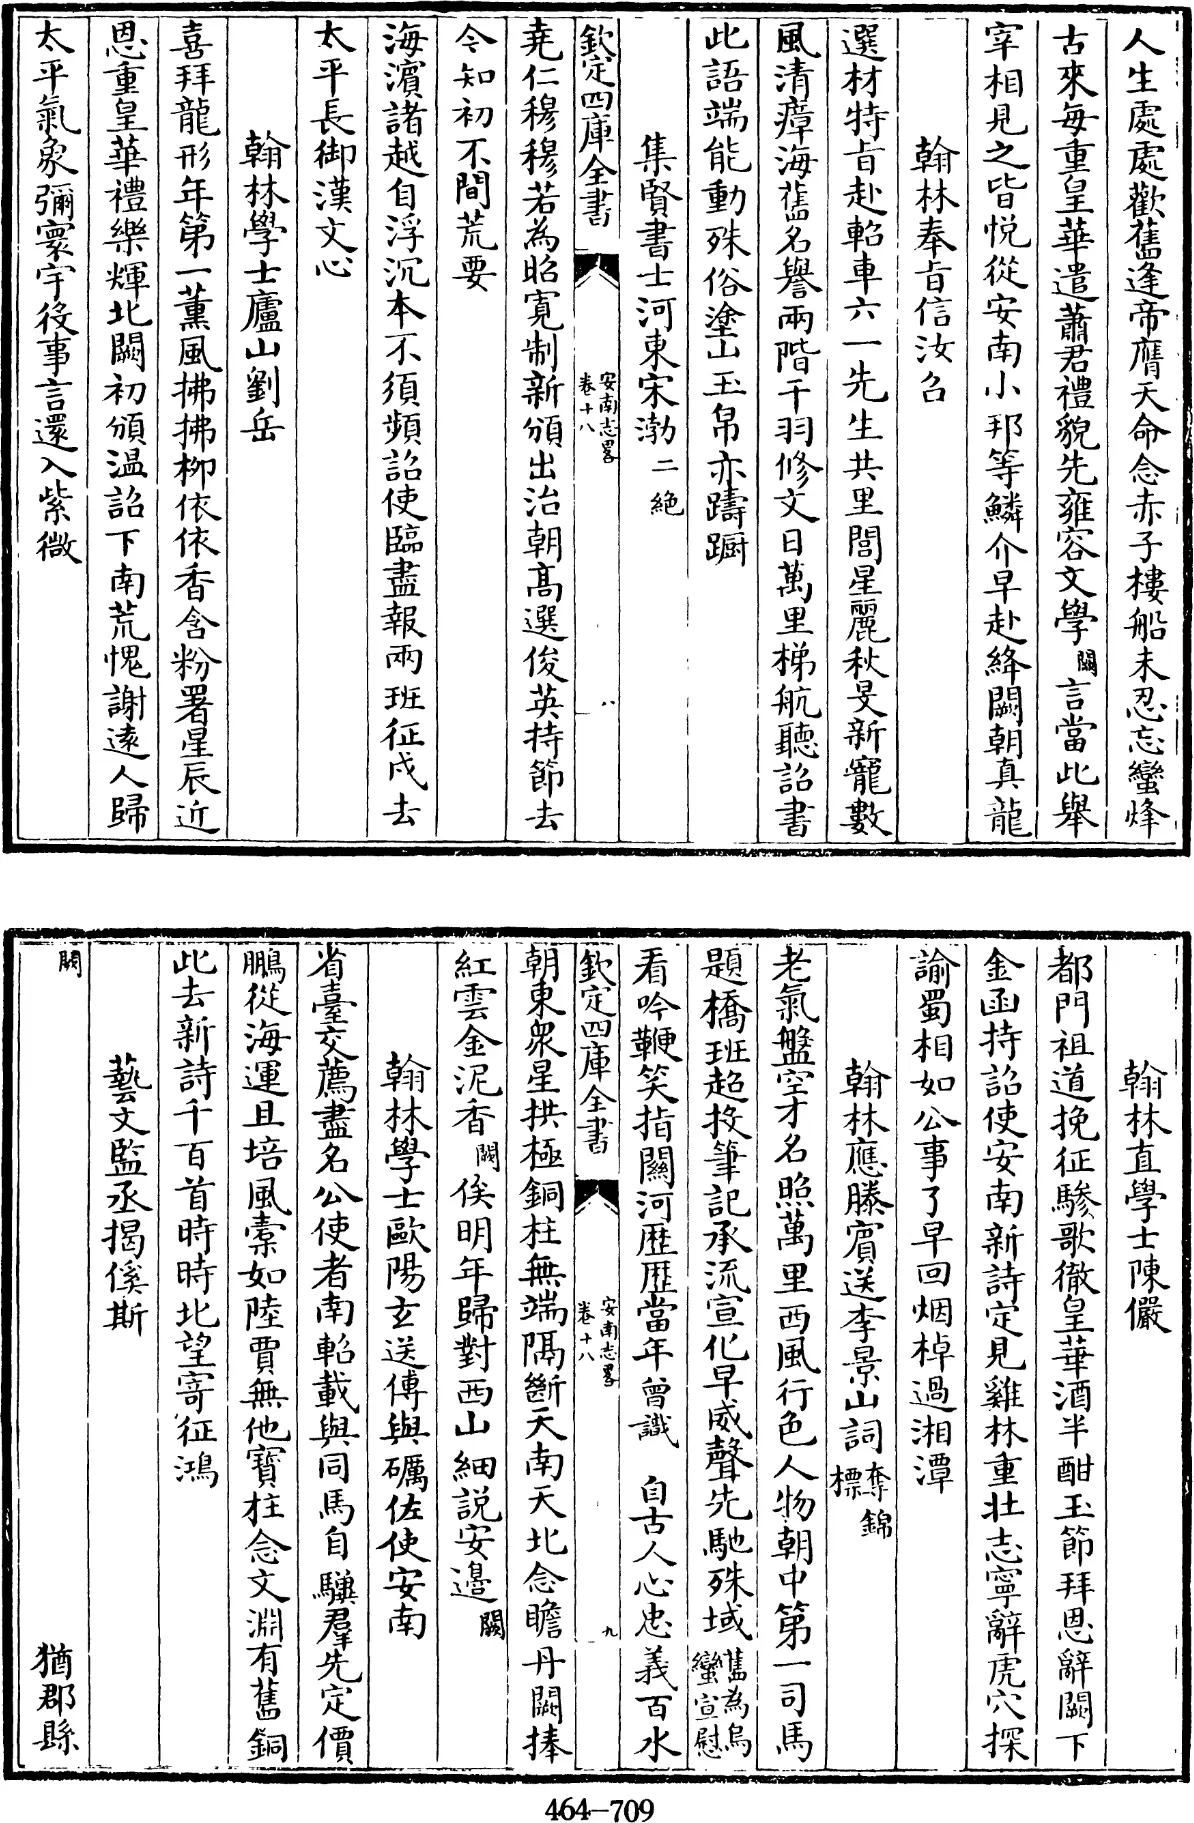 人生處處歡舊逢帝膺天命念赤子樓船未忍忘蠻烽
古來每重皇華遣蕭君禮貌先雍容文學闕言當此舉
宰相見之皆悦從安南小邦等鱗介早赴絳闕朝真龍
翰林奉旨信汝名
選材特旨赴軺車六一先生共里閭星麗秋旻新寵數
風清瘴海舊名譽兩階干羽修文日萬里梯航聽詔書
此語端能動殊俗塗山玉帛亦躊躕
集賢書士河東宋渤二絶
欽定四庫全書
安南志畧
卷十八
八
堯仁穆穆若為昭寛制新頒出治朝髙選俊英持節去
令知初不間荒要
海濵諸越自浮沉本不須頻詔使臨盡報兩班征戍去
太平長御漢文心
翰林學士廬山劉岳
喜拜龍形年第一薰風拂拂栁依依香含粉署星辰近
恩重皇華禮樂輝北闕初頒温詔下南荒愧謝逺人歸
太平氣象彌寰宇役事言還入紫㣲
翰林直學士陳儼
都門祖道挽征驂歌徹皇華酒半酣玉節拜恩辭闕下
金函持詔使安南新詩定見雞林重壯志寧辭虎穴探
諭蜀相如公事了早回烟棹過湘潭
翰林應滕賓送李景山詞奪錦
標
老氣盤空才名照萬里西風行色人物朝中第一司馬
題橋班超投筆記承流宣化早威聲先馳殊域舊為烏
蠻宣慰
看吟鞭笑指關河歴歴當年曾識　自古人心忠義百水
欽定四庫全書
安南志畧
卷十八
九
朝東衆星拱極銅柱無端隔斷天南天北念瞻丹闕捧
紅雲金泥香闕俟明年歸對西山細説安邉闕
翰林學士歐陽玄送傅與礪佐使安南
省臺交薦盡名公使者南軺載與同馬自驥羣先定價
鵬從海運且培風橐如陸賈無他寳柱念文淵有舊銅
此去新詩千百首時時北望寄征鴻
藝文監丞揭傒斯
闕　猶郡縣
464-709